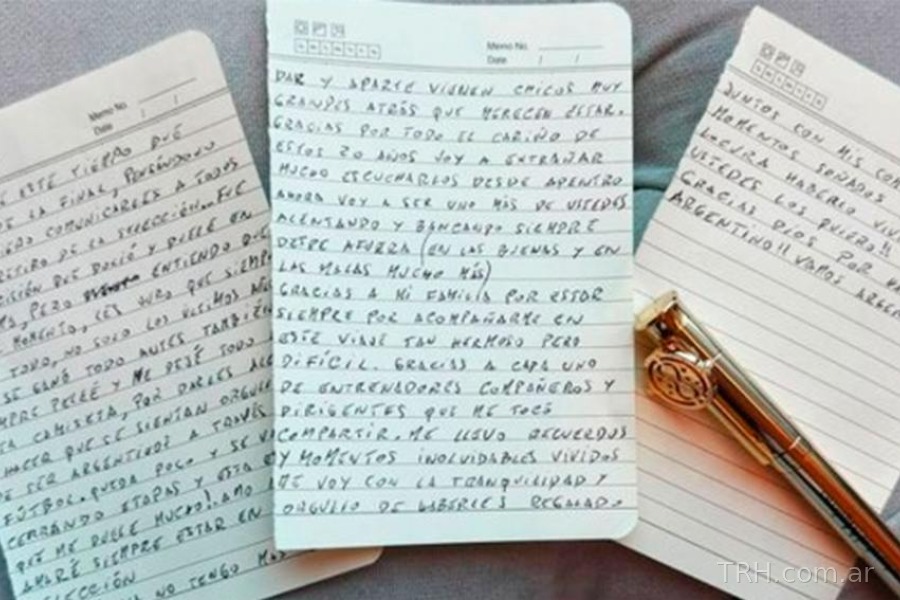 Memo No.
Date / /
ESTE TIEMPO QUE
DE LA FINAL, PENSÁNDOLO
COMUNICARLES A TODOS
RETIRO DE LA SELECCIÓN. FUE
QUE DOLIÓ Y DUELE EN
PERO ENTIENDO QUE
MOMENTO, LES JURO QUE SIEMP
TODO, NO SOLO LOS ÚLTIMOS AÑOS
SE GANÓ TODO ANTES TAMBIÉN
MPRE PELEÉ Y ME DEJÉ TODO
TA CAMISETA, POR DARLES ALE
HACER QUE SE SIENTAN ORGULL
DE SER ARGENTINOS A TRAVÉS
FÚTBOL. QUEDA POCO Y SE VA
CERRANDO ETAPAS Y ESTA ES
QUE ME DUELE MUCHO). AMO
AMARÉ SIEMPRE ESTAR EN
SELECCIÓN
NO TENGO MÁS
Memo No.
Date / /
DAR Y APARTE VIENEN CHICOS MUY
GRANDES ATRÁS QUE MERECEN ESTAR.
GRACIAS POR TODO EL CARIÑO DE
ESTOS 20 AÑOS VOY A EXTRAÑAR
MUCHO ESCUCHARLOS DESDE ADENTRO
AHORA VOY A SER UNO MÁS DE USTEDES
ALENTANDO Y BANCANDO SIEMPRE
DESDE AFUERA (EN LAS BUENAS Y EN
LAS MALAS MUCHO MÁS)
GRACIAS A MI FAMILIA POR ESTAR
SIEMPRE POR ACOMPAÑARME EN
ESTE VIAJE TAN HERMOSO PERO
DIFÍCIL. GRACIAS A CADA UNO
DE ENTRENADORES COMPAÑEROS Y
DIRIGENTES QUE ME TOCÓ
COMPARTIR. ME LLEVO RECUERDOS
Y MOMENTOS INOLVIDABLES VIVIDOS
ME VOY CON LA TRANQUILIDAD Y
ORGULLO DE HABERLES REGALADO
JUNTOS CON MIS COM
MOMENTOS SOÑADOS
LOCURA HABERLO VIVI
USTEDES LOS QUIERO!!
GRACIAS DIOS POR HA
ARGENTINO!! VAMOS ARGEN
TRH.com.ar